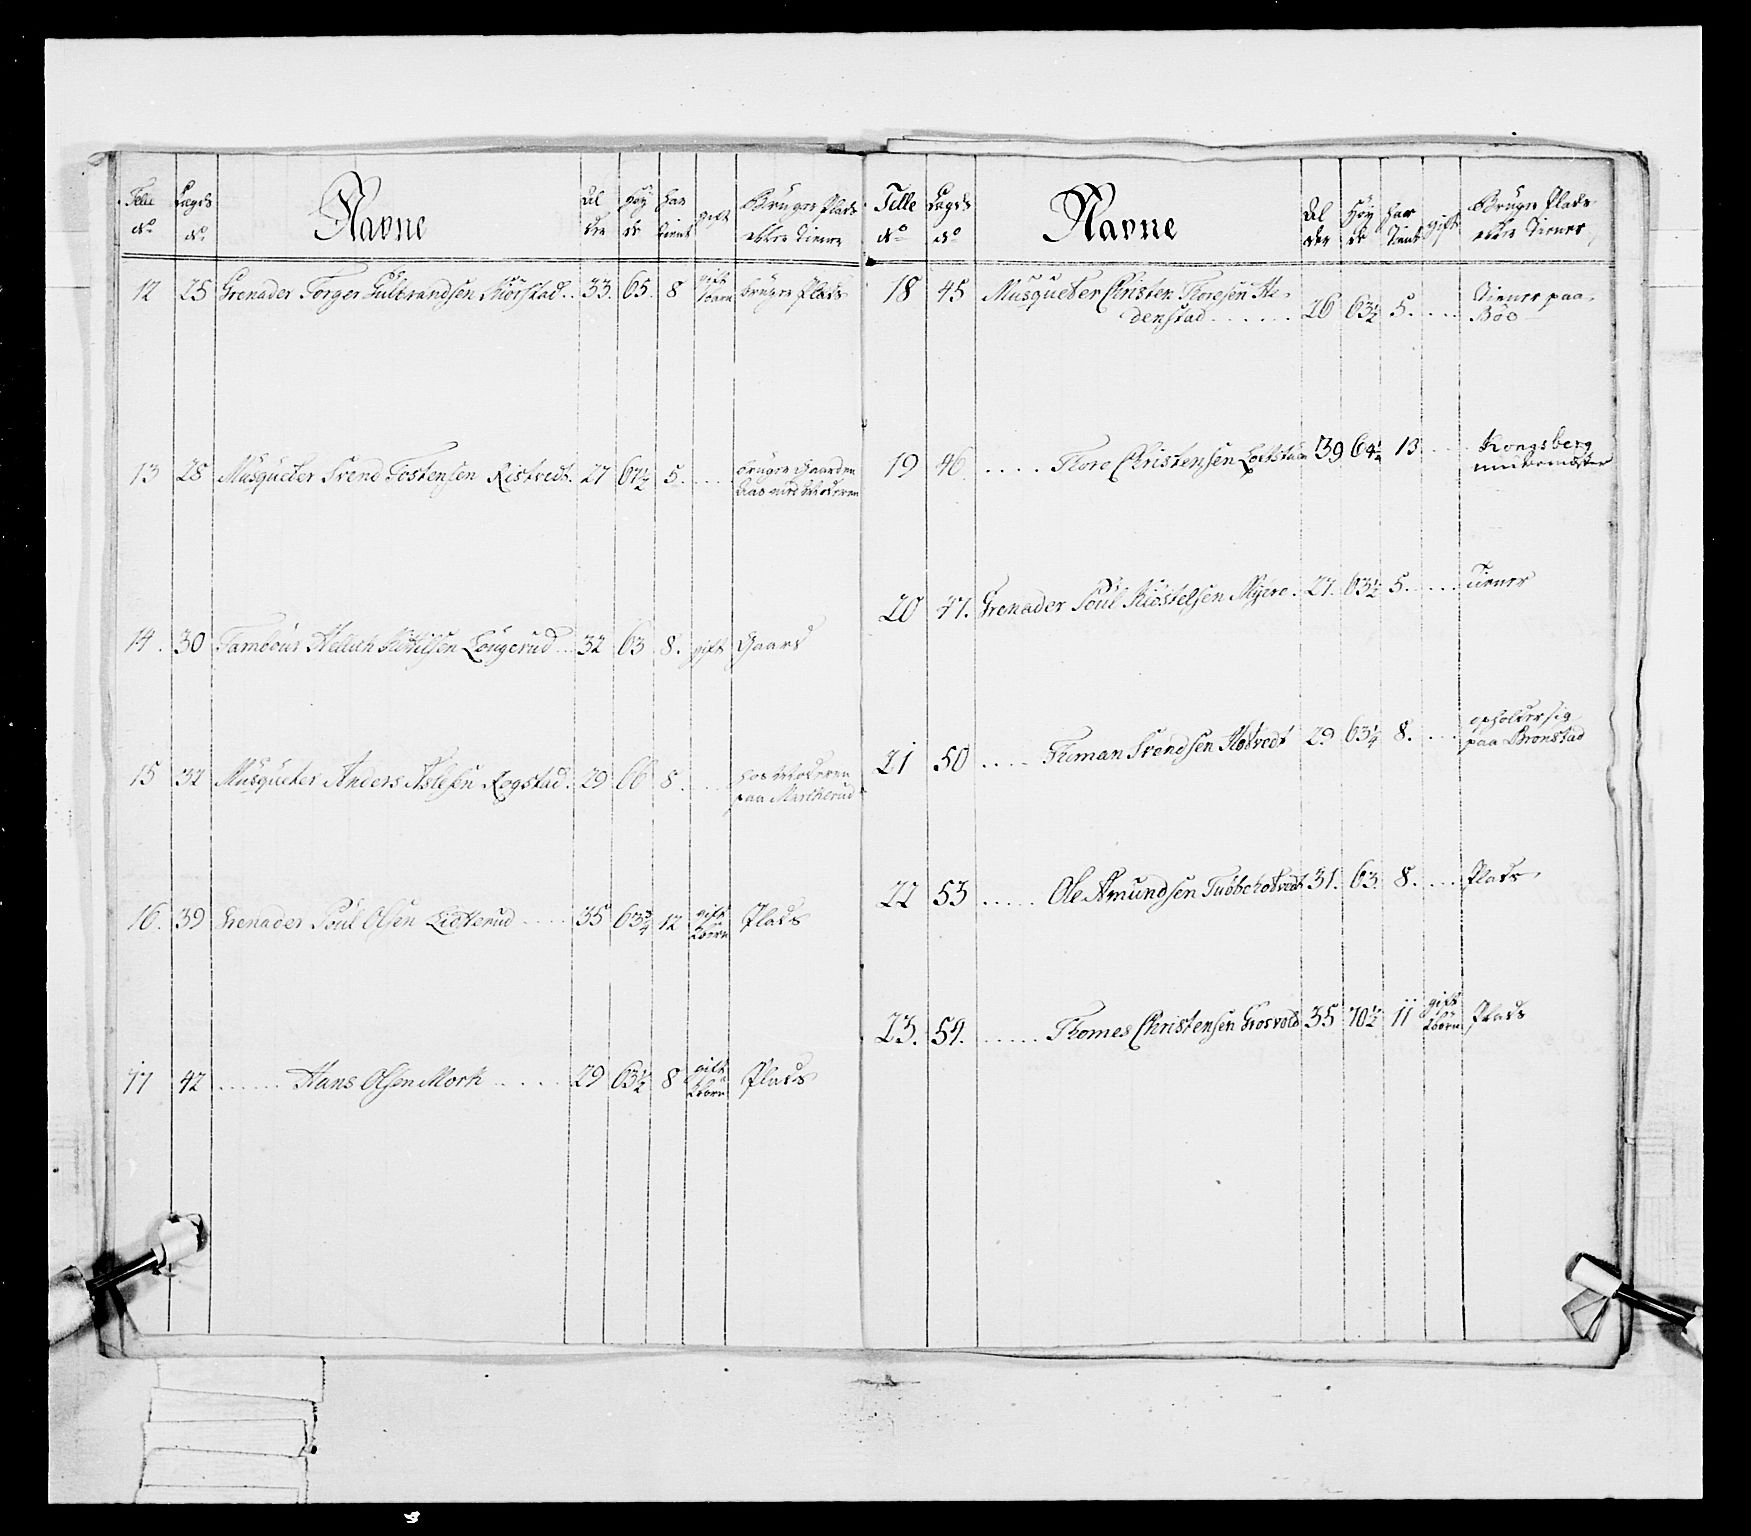 Telle No | Lægds No. | Navne | Al der | Høy de | har tient | gift | Bruger Plads eller tiener
12 | 25 | Grenader Torger Gulbrandsen Kiørstad .. | 33. | 65. | 8 | gift 1 børn | bruger Plads
13 | 28 | Musqueter Svend Tostensen Ristvedt. | 27 | 67½ | 5. | .... | bruger Gaarden
hos med Moderen
14. | 30 | Tambour Hellech Kittilsen Lougerud .. | 32 | 63 | 8. | gift | Gaard
15 | 32 | Musqueter Anders Aslesen Rogstad. | 29 | 66 | 8. | .... | hos Moderen
paa Mastherud
16. | 39 | Grenader Poul Olsen Lidterud ..... | 35 | 63¾ | 12 | gift 2 børn | Plads
17 | 42 | ...... Hans Olsen Mork ...... | 29 | 63½ | 8 | gift 2 børn | Plads
Telle No | Lægds No | Navne | Al der | Høy de | har tient | gift | Bruger Plads eller tiener
18 | 45 | Musqueter Christen Thoresen He-
denstad ...... | 26 | 63½ | 5. | .... | tiener paa
Böe
19 | 46 | ..... Thore Christensen | 39 | 64½ | 13 | ... | Kongsberg
20 | 47. | Grenader Poul Kiøstelsen Myere. | 27. | 63½ | 5. | .... | tiener
21 | 50 | .... Tieman Svendsen Hosvedt | 29 | 63¼ | 8. | ... | opholder sig
paa Bronstad
22 | 53 | ..... Ole Amundsen | 31. | 63. | 8. | .... | Plads
23. | 54. | ..... Thomes Christensen Grosvold | 35 | 70½ | 11 | gift 2 børn | Plads